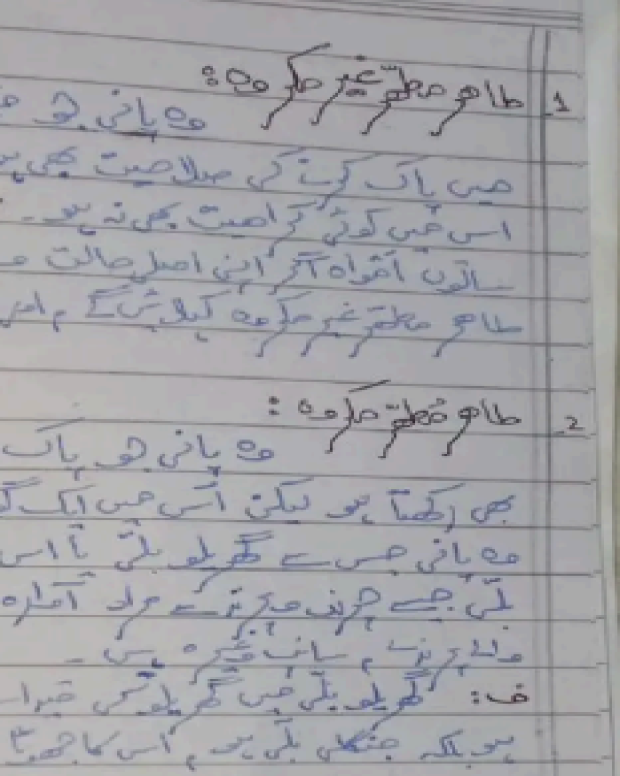 1. طاهر مطهّر غیر مکروہ :
وہ پانی جو
میں پاک کرنے کی صلاحیت بھی ہو
اس میں کوئی کراھیت بھی نہ ہو۔
ساتوں افواہ اگر اپنی اصل حالت
طاهر مطہّر غیر مکروہ کہلائیں گے ،
2. طاهر مُطہّر مکروہ :
وہ پانی جو پاک
بھی رکھتا ہو لیکن اُس میں ایک
وہ پانی جس سے گھریلو بلّی یا اس
بلّی جیسے چرند و پرندے مراد آوارہ
والے پرندے ، سانپ وغیرہ ہیں ۔
ف: گھریلو بلّی میں گھریلو کی
ہو بلکہ جنگلی بلّی ہو ، اُس کا جھوٹا